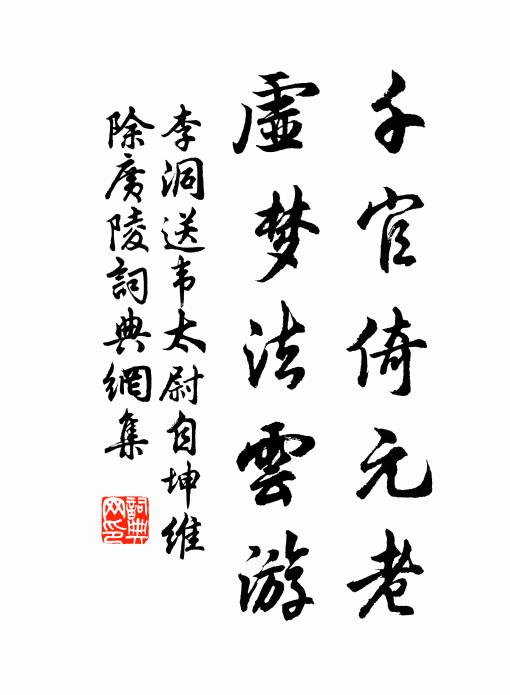 千官倚元老
虛梦法雲游
李洞送韦太尉自坤維
除广陵詞典網集
詞典网印